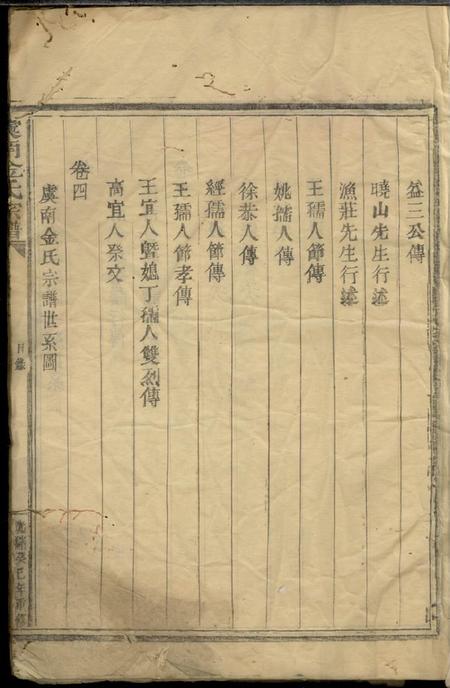 益三公傳
曉山先生行述
漁莊先生行述
王孺人節傳
姚孺人傳
徐恭人傳
經孺人節傳
王孺人節孝傳
王宜人暨媳丁孺人雙烈傳
高宜人祭文
卷四
虞南金氏宗譜世系圖
虞南金氏宗譜
目錄
癸巳年重修